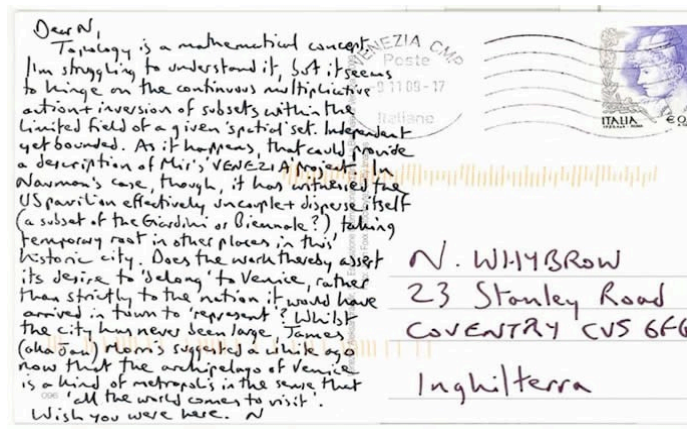 Dear N,
Topology is a mathematical concept.
I'm struggling to understand it, but it seems
to hinge on the continuous multiplicative
action + inversion of subsets within the
limited field of a given 'spatial' set. Independent
yet bounded. As it happens, that could provide
a description of Mir's 'VENEZIA' project. In
Nauman's case, though, it has witnessed the
US pavilion effectively uncouple + disperse itself
(a subset of the Giardini or Biennale?) taking
temporary root in other places in this
historic city. Does the work thereby assert
its desire to 'belong' to Venice, rather
than strictly to the nation it would have
arrived in town to 'represent'? Whilst
the city has never been large, James
(aka Jan) Morris suggested a while ago
now that the archipelago of Venice
is a kind of metropolis in the sense that
'all the world comes to visit'.
Wish you were here. N
096
VENEZIA CMP
Poste
11 09 - 17
Italiane
ITALIA
€0
N. WHYBROW
23 Stanley Road
COVENTRY CV5 6FG
Inghilterra